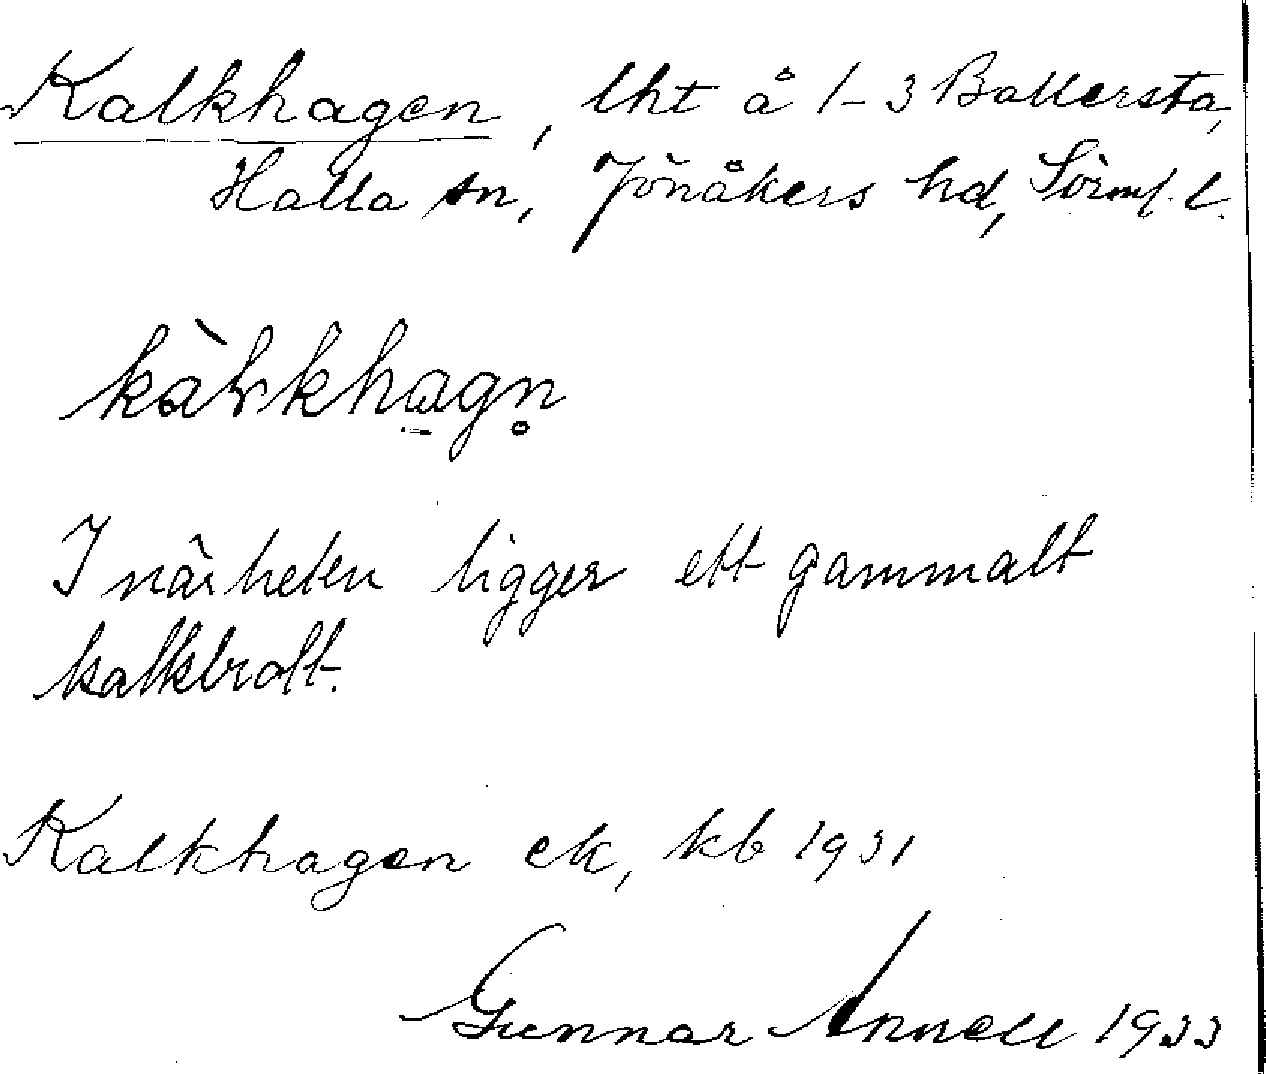 Kalkhagen, lht å 1-3 Ballersta,
Halla sn, Jönåkers hd, Sörml. l.
I närheten ligger ett gammalt
kalkbrott.
Kalkhagen ek, kb 1931
Gunnar Annell 1933